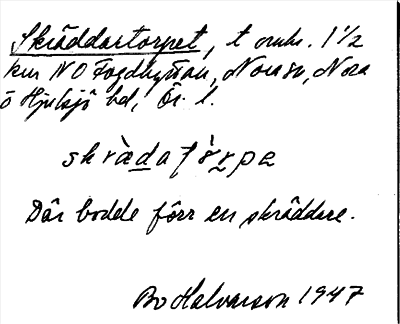 Skräddartorpet, t omr. 1 1/2
km NO Fogdhyttan, Nora sn, Nora
o Hjulsjö bd, Ör. l.
skrä̀datɔ̀rpe
Där bodde förr en skräddare.
Bo Halvarson 1947